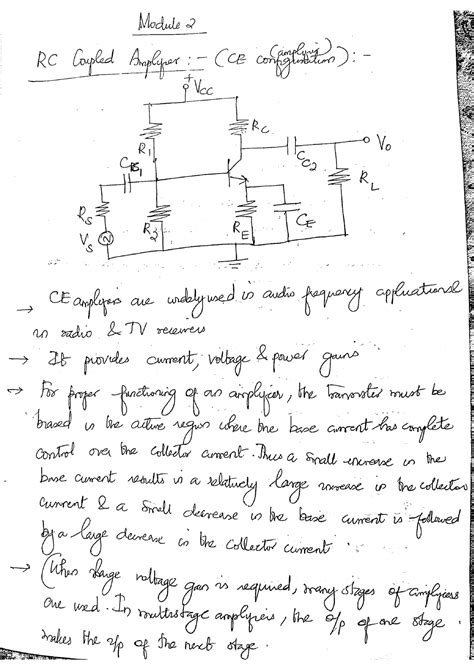 Module 2
RC Coupled Amplifier :- (CE configuration) :-
+
Vcc
R1
RC
CC2
Vo
RL
RS
VS
R2
RE
CE
→ CE amplifiers are widely used in audio frequency applications
in radio & TV receivers
→ It provides current, voltage & power gains
→ For proper functioning of an amplifier, the transistor must be
biased in the active region where the base current has complete
control over the collector current. Thus a small increase in the
base current results in a relatively large increase in the collector
current & a small decrease in the base current is followed
by a large decrease in the collector current.
→ (When large voltage gain is required, many stages of amplifiers
are used. In multistage amplifiers, the o/p of one stage
makes the i/p of the next stage.